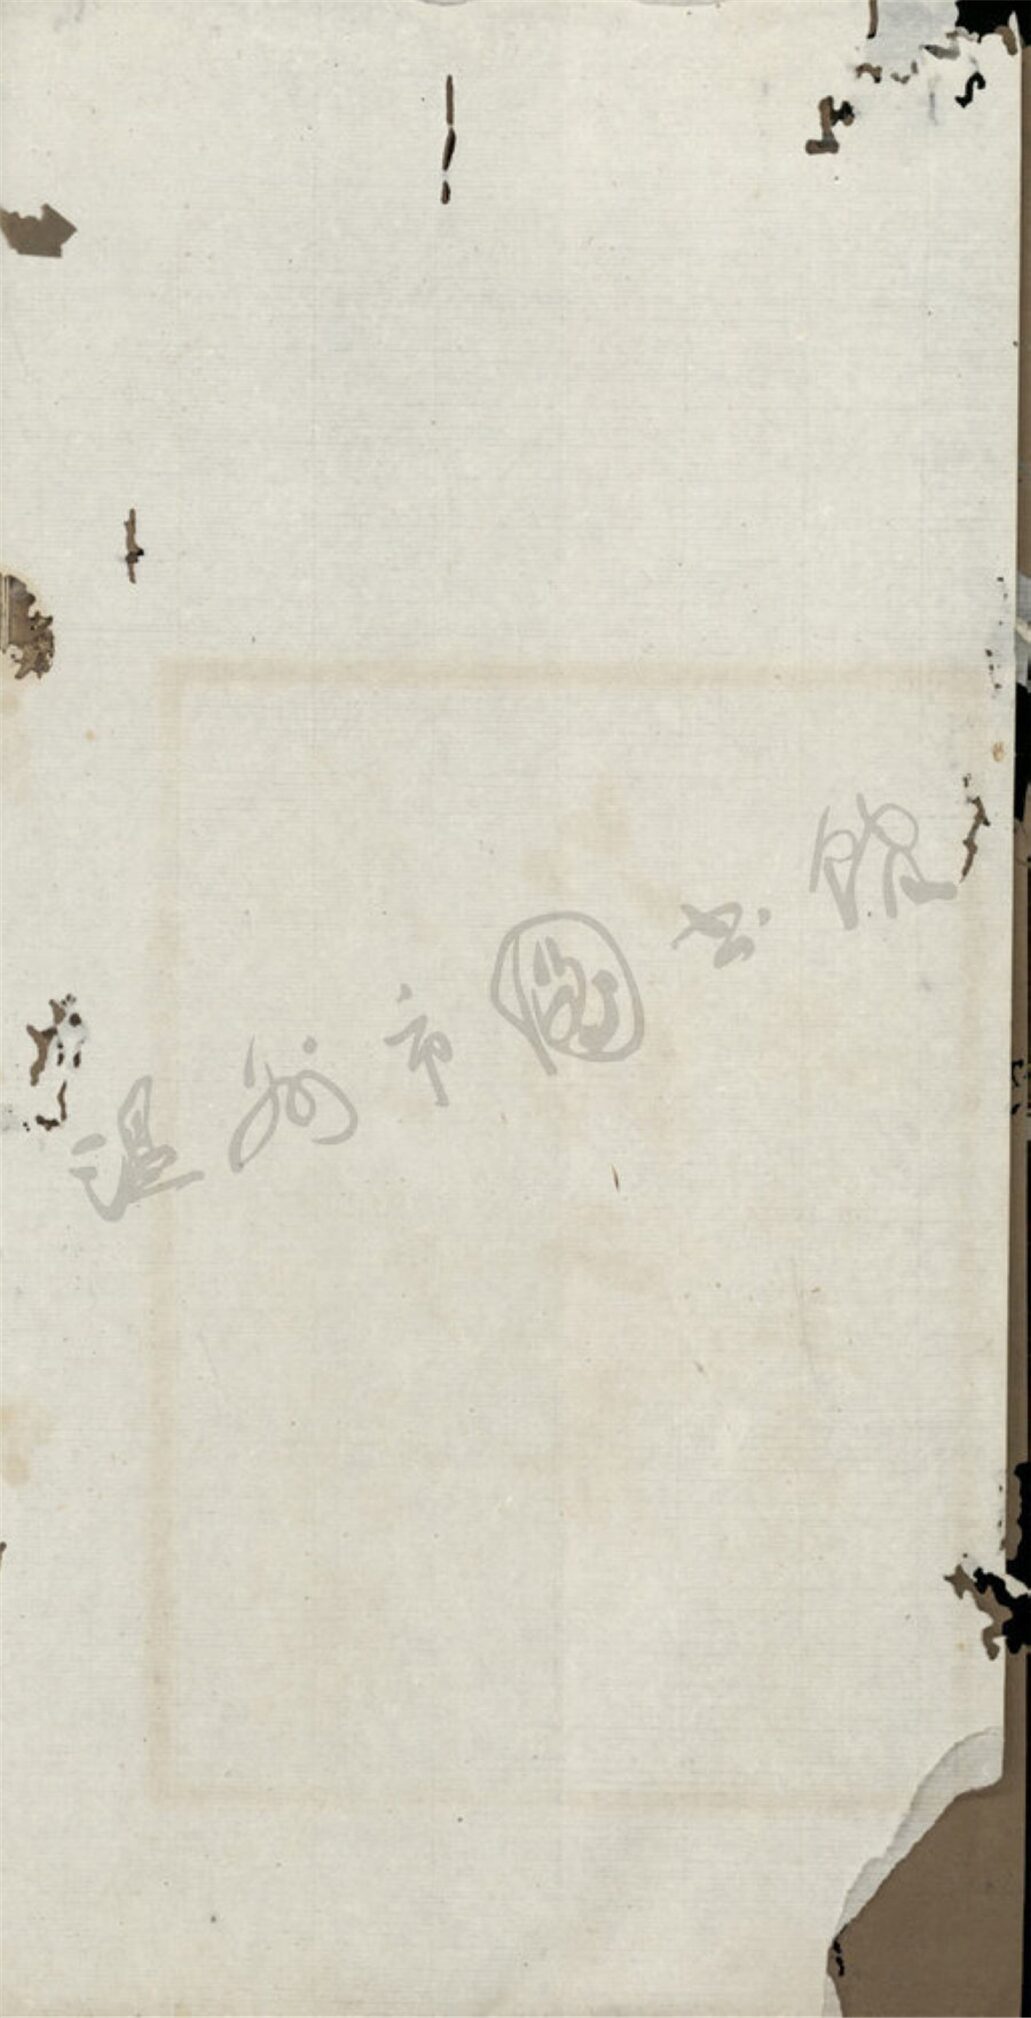 温州市圖书馆